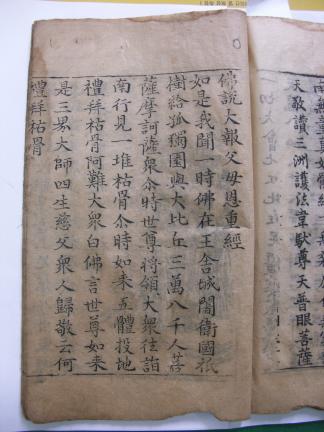 南無童真如…體經…
天敬讚三洲護法韋馱尊天普眼菩薩
佛說大報父母恩重經
如是我聞一時佛在王舍城闍衛國祇
樹給孤獨園與大比丘三萬八千人菩
薩摩訶薩衆尒時世尊將領大衆往詣
南行見一堆枯骨尒時如來五體投地
禮拜枯骨阿難大衆白佛言世尊如來
是三界大師四生慈父衆人歸敬云何
禮拜枯骨